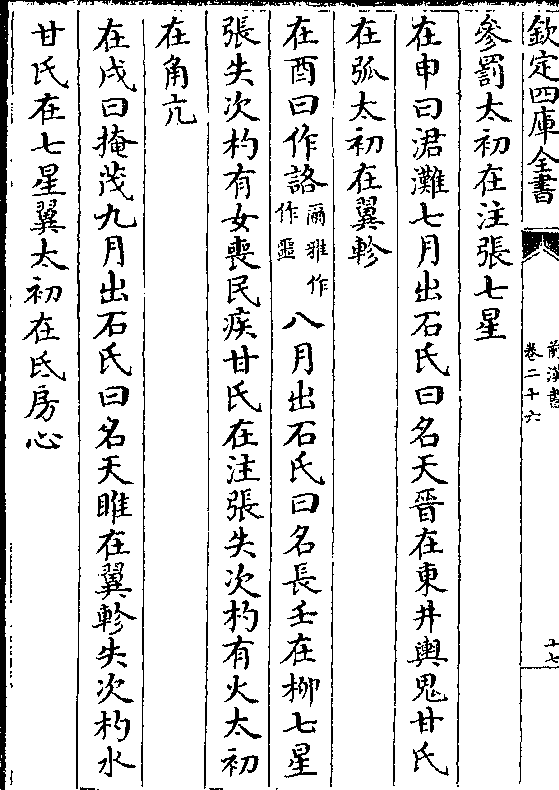 欽定四庫全書
前漢書
卷二十六
十七
參罰太初在注張七星
在申曰涒灘七月出石氏曰名天晉在東井輿鬼甘氏
在弧太初在翼軫
在酉曰作詻爾雅作作噩八月出石氏曰名長壬在柳七星
張失次杓有女喪民疾甘氏在注張失次杓有火太初
在角亢
在戌曰掩茂九月出石氏曰名天睢在翼軫失次杓水
甘氏在七星翼太初在氐房心